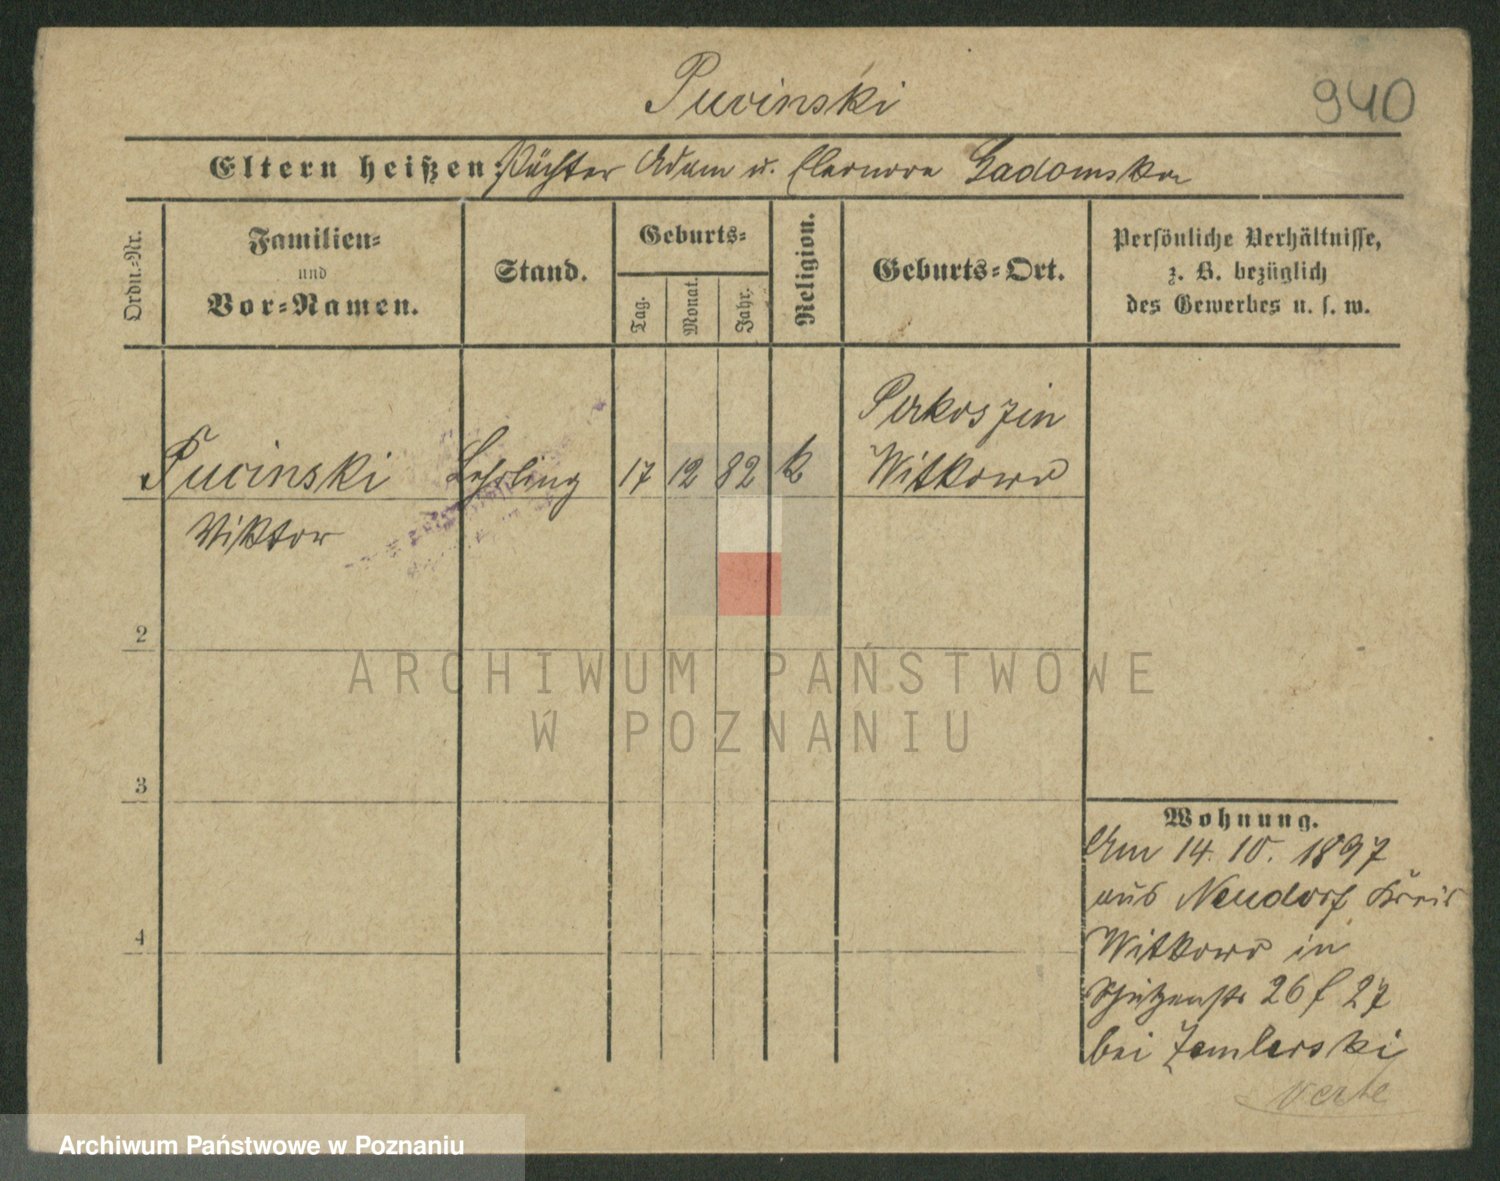 Pucinski
940
Eltern heißen: Pächter Adam u. Eleonora Gadomska
Ordn.-Nr.
Familien-
und
Vor-Namen.
Stand.
Geburts-
Tag.
Monat.
Jahr.
Religion.
Geburts-Ort.
Persönliche Verhältnisse,
z. B. bezüglich
des Gewerbes u. s. w.
Pucinski
Viktor
Lehrling
17
12
82
k
Witkowo
2
3
4
Wohnung.
Am 14. 10. 1897
aus Neudorf Kreis
Witkowo in
Schützenstr 26 / 27
bei Zemlerski
verte
ARCHIWUM PAŃSTWOWE
W POZNANIU
Archiwum Państwowe w Poznaniu